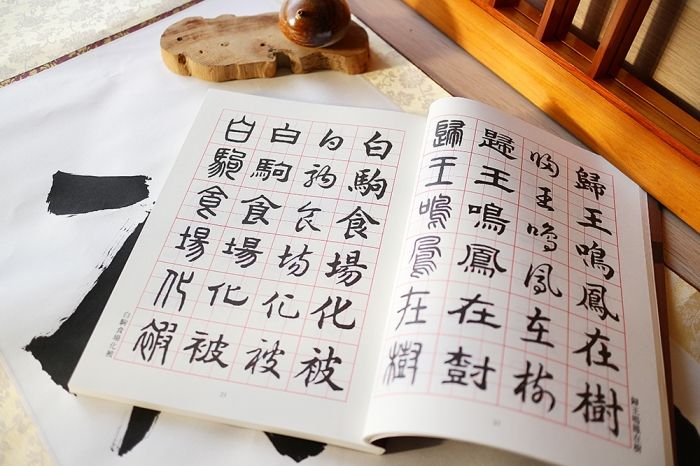 歸王鳴鳳在樹
歸王鳴鳳在樹
歸王鳴鳳在樹
歸王鳴鳳在樹
歸王鳴鳳在樹
白駒食場化被
白駒食場化被
白駒食場化被
白駒食場化被
白駒食場化被